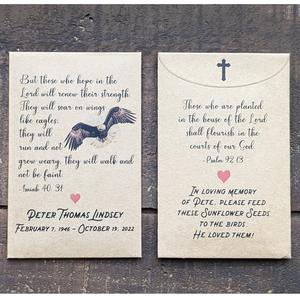 But those who hope in the
Lord will renew their strength.
They will soar on wings
like eagles;
they will
run and not
grow weary, they will walk and
not be faint.
-Isaiah 40:31
Peter Thomas Lindsey
February 7, 1946 ~ October 19, 2022
Those who are planted
in the house of the Lord
shall flourish in the
courts of our God.
-Psalm 92:13
In loving memory
of Pete, please feed
these Sunflower Seeds
to the birds.
He loved them!